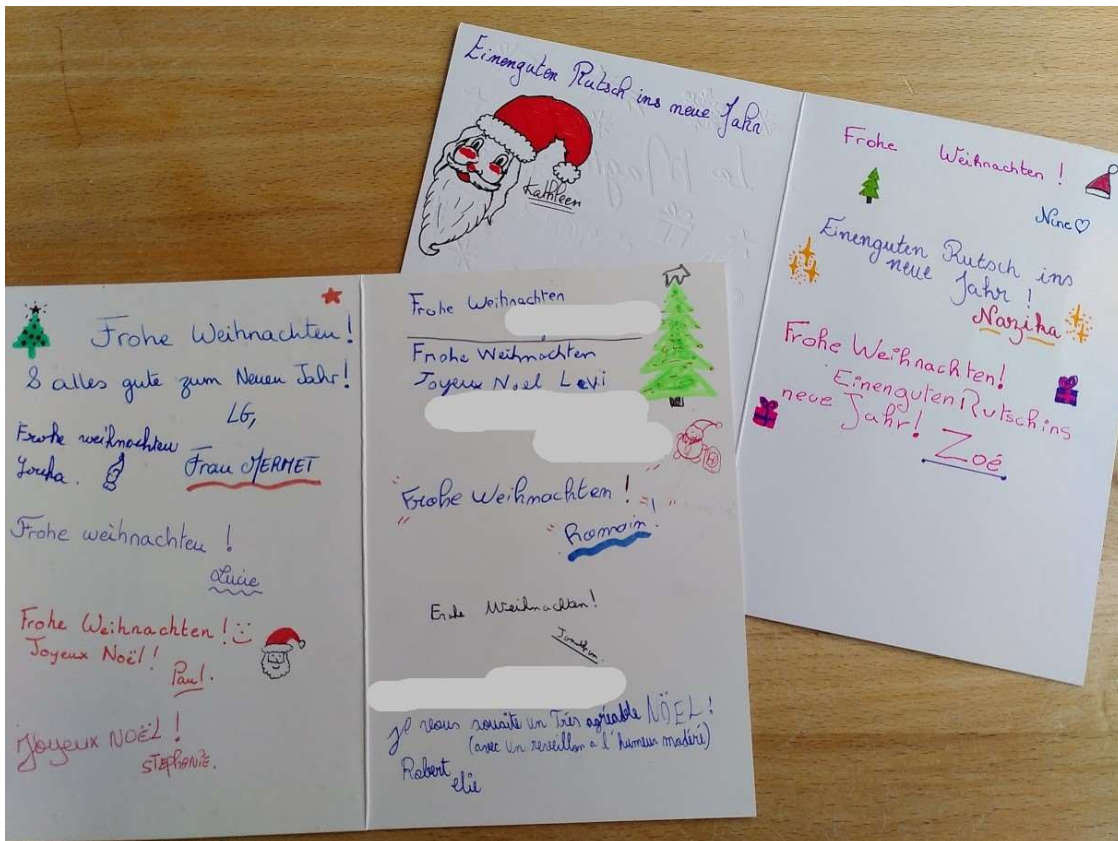 Einenguten Rutsch ins neue Jahr
Kathleen
Frohe Weihnachten !
Nine
Einenguten Rutsch ins
neue Jahr !
Nazika
Frohe Weihnachten!
Einenguten Rutsch ins
neue Jahr!
Zoé
Frohe Weihnachten!
& alles gute zum Neuen Jahr!
LG,
Frau MERMET
Frohe weihnachten
Frohe weihnachten !
Lucie
Frohe Weihnachten !
Joyeux Noël !
Paul.
Joyeux NOËL !
STEPHANIE.
Frohe Weihnachten
Frohe Weihnachten
Joyeux Noel Levi
Frohe Weihnachten !
Romain !
Weihnachten!
je vous souaite un Très agréable NÖEL !
(avec un reveillon a l'humeur madéré)
Robert
elie